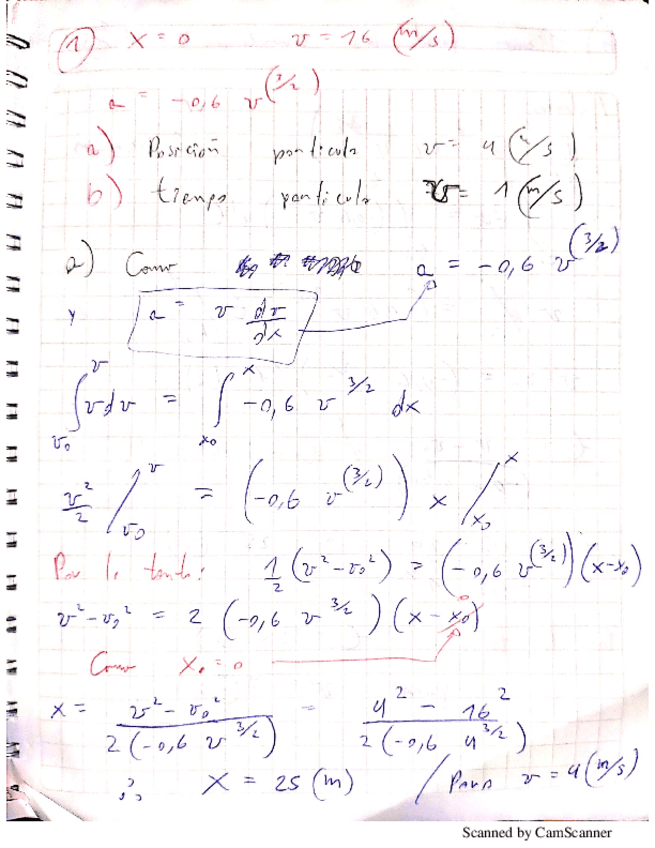 ① x = 0 v = 16 (m/s)
a = -0,6 v^(3/2)
a) Posición particula v = 4 (m/s)
b) tiempo particula v = 1 (m/s)
a) Como a = -0,6 v^(3/2)
y a = v dv/dx
∫_{v0}^{v} v dv = ∫_{x0}^{x} -0,6 v^3/2 dx
v²/2 |_{v0}^{v} = (-0,6 v^(3/2)) x |_{x0}^{x}
Por lo tanto: 1/2 (v² - v0²) = (-0,6 v^(3/2)) (x - x0)
v² - v0² = 2 (-0,6 v^3/2) (x - x0) 0
Como x0 = 0
x = (v² - v0²) / (2 (-0,6 v^3/2)) = (4² - 16²) / (2 (-0,6 4^3/2))
∴ x = 25 (m) / Para v = 4 (m/s)
Scanned by CamScanner